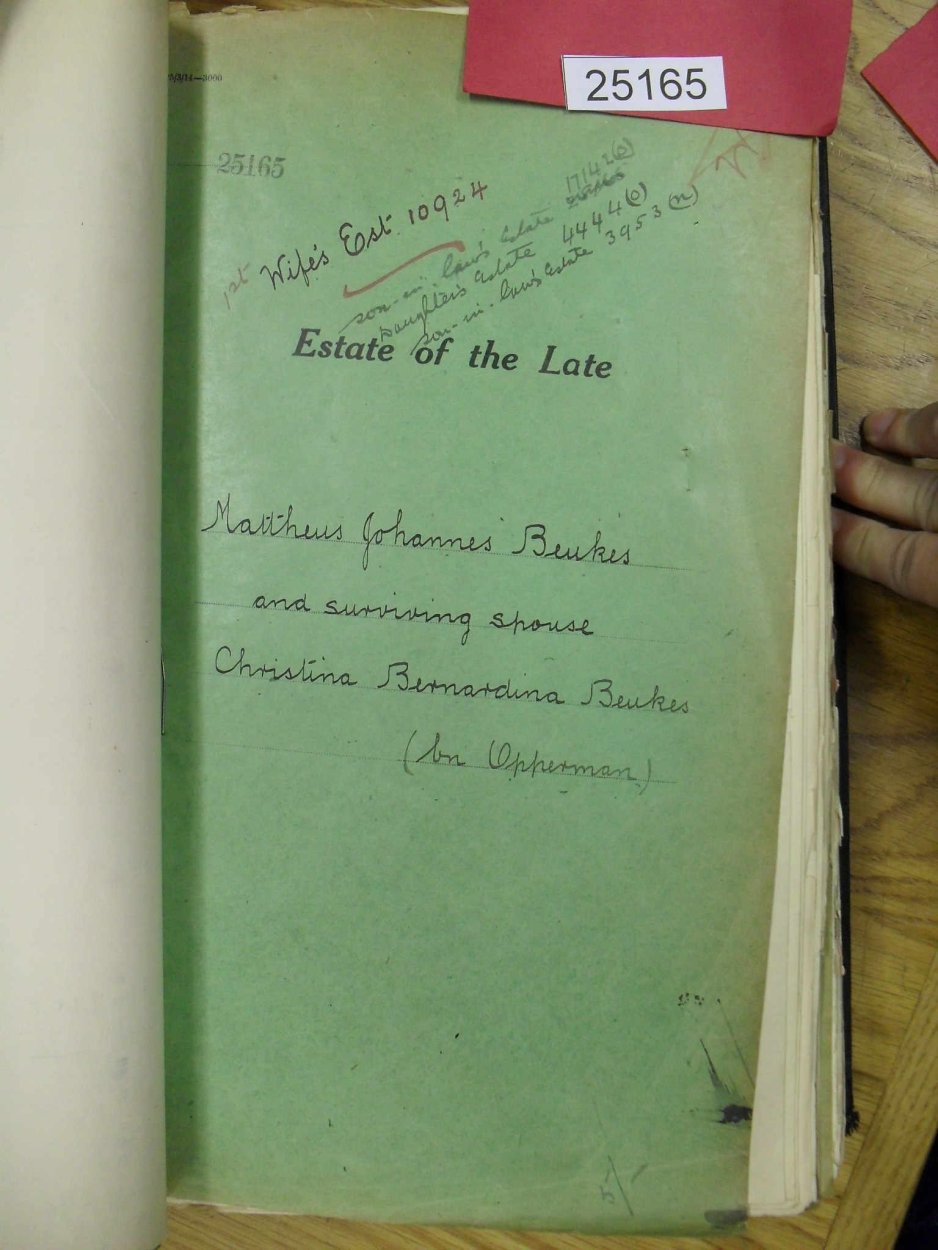 25165
25165
1st Wife's Est. 10924
son-in-law's Estate 17142(0)
Daughter's Estate 4444(0)
son-in-law's Estate 3953(n)
Estate of the Late
Mattheus Johannes Beukes
and surviving spouse
Christina Bernardina Beukes
(bn Opperman)